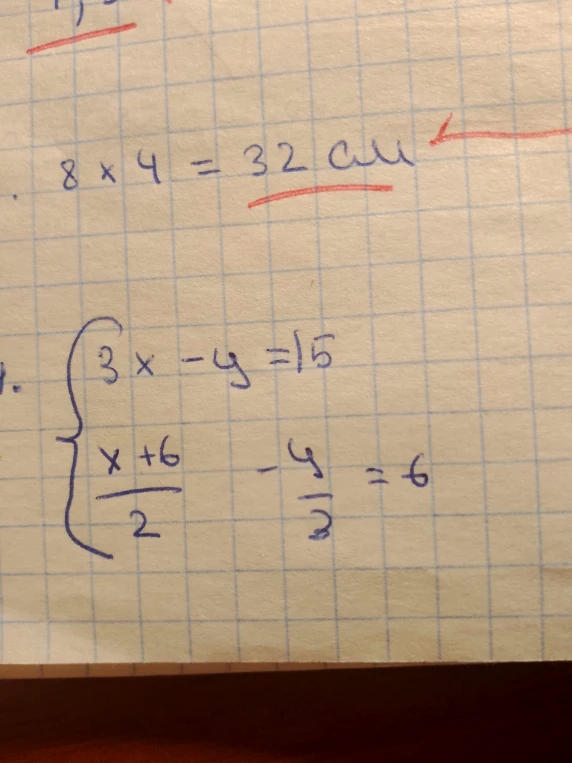 8 × 4 = 32 см
3x - y = 15
x + 6 / 2 - y / 3 = 6